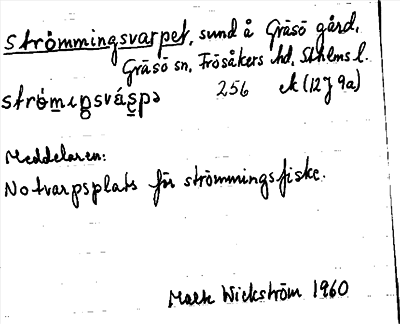 Strömmingsvarpet, sund å Gräsö gård,
Gräsö sn, Frösåkers hd, Sthlms l.
256 ek (12J 9a)
Meddelaren:
Notvarpsplats för strömmingsfiske.
Wickström 1960